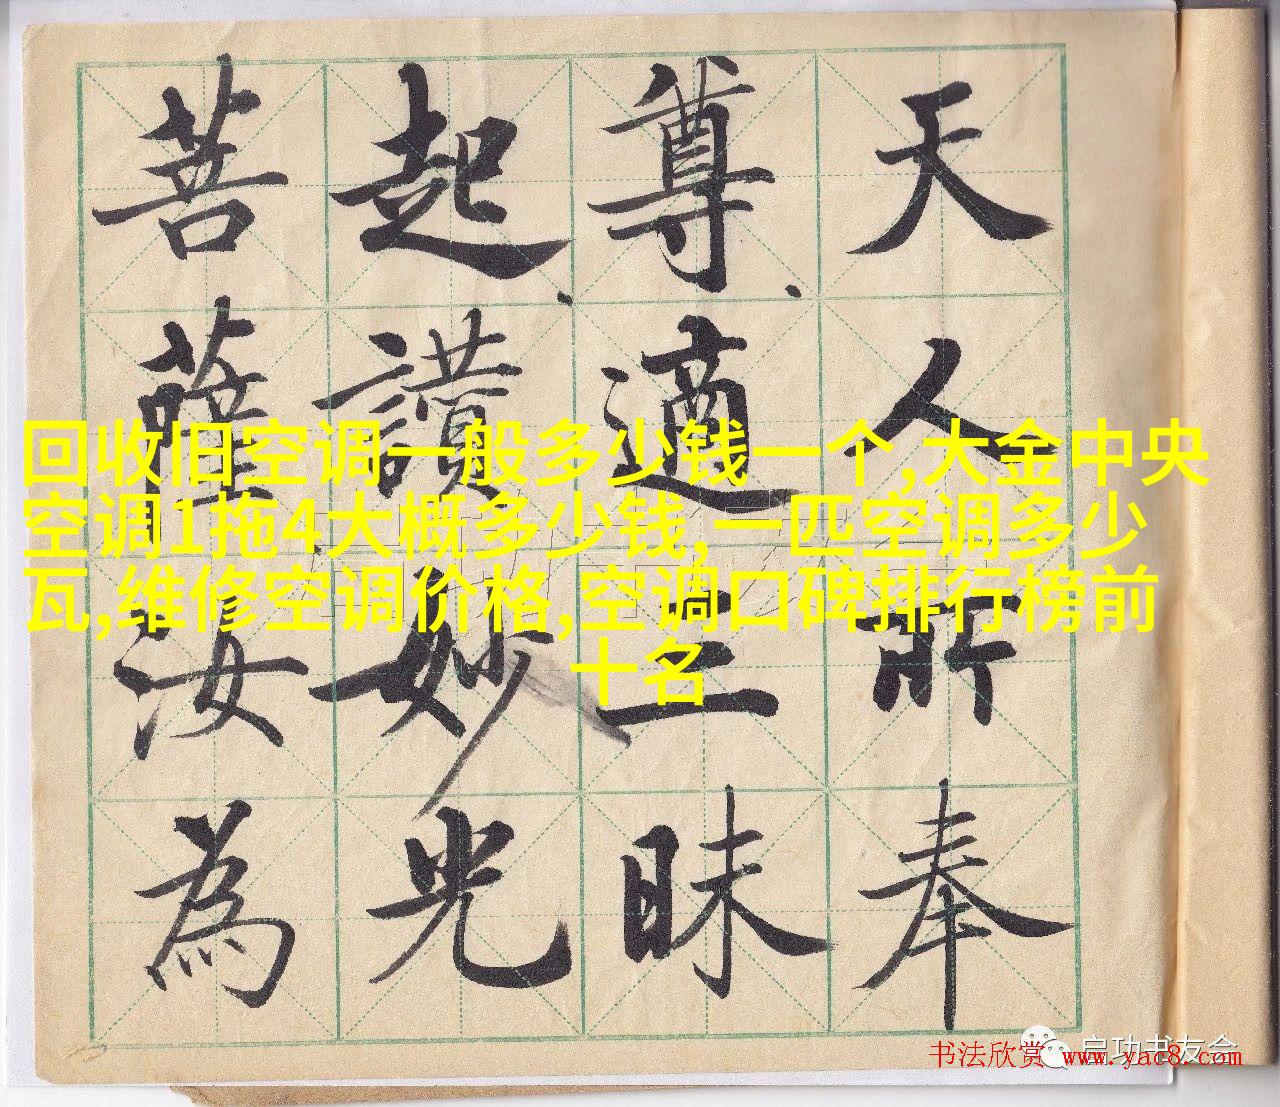 天人所奉
尊適三昧
起讃妙光
菩薩汝為
回收旧空调一般多少钱一个,大金中央
空调1拖4大概多少钱,一匹空调多少
瓦,维修空调价格,空调口碑排行榜前
十名
启功书友会
书法欣赏 www.yac8.com